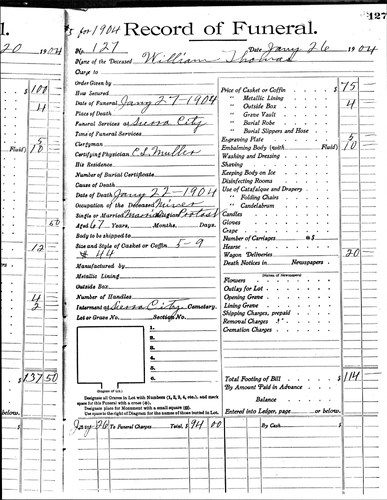 l.
5 for 1904 Record of Funeral. 127
20 1904 No. 127 Date Jany 26 1904
Name of the Deceased William Thomas
Charge to
Order Given by
$ 100 How Secured Price of Casket or Coffin $ 75
Date of Funeral Jany 27-1904 " Metallic Lining
4 Place of Death " Outside Box 4
Funeral Services at Sierra City " Grave Vault
Time of Funeral Services " Burial Robe
Clergyman " Burial Slippers and Hose
5 Certifying Physician C.L. Muller Engraving Plate 5
Fluid) 10 His Residence Embalming Body (with Fluid) 10
Number of Burial Certificate Washing and Dressing
Cause of Death Shaving
Date of Death Jany 22-1904 Keeping Body on Ice
Occupation of the Deceased Miner Disinfecting Rooms
Single or Married Married Religion Protest Use of Catafalque and Drapery
50 Aged 67 Years, Months, Days. " Folding Chairs
Body to be shipped to " Candelabrum
Size and Style of Casket or Coffin 5-9 Candles
# 44 Gloves
Crape
12 Manufactured by Number of Carriages @ $
Metallic Lining Hearse
Outside Box Wagon Deliveries 20
4 Number of Handles Death Notices in Newspapers
2 Interment at Sierra City Cemetery. (Names of Newspapers)
Lot or Grave No. Section No. Flowers
1. Outlay for Lot
2. Opening Grave
3. Lining Grave
4. Shipping Charges, prepaid
5. Removal Charges
6. Cremation Charges
(Diagram of Lot.)
$ 137 50 Designate all Graves in Lot with Numbers (1, 2, 3, 4, etc.), and mark space for this Funeral with a cross (+). Total Footing of Bill $ 114
Designate place for Monument with a small square (□). By Amount Paid in Advance
Use space the right of Diagram for the names of those buried in Lot. Balance
or below. Entered into Ledger, page or below.
Jany 26 To Funeral Charges Total, $ 94 00 By Cash